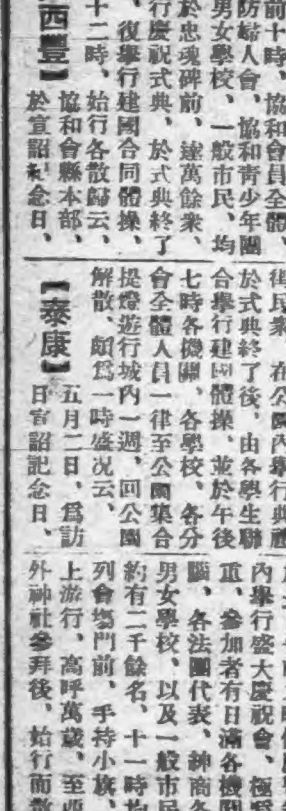 前十時、協和會員全體、
防婦人會、協和青少年團
男女學校、一般市民、均
於忠魂碑前、達萬餘衆、
行慶祝式典、於式典終了
復舉行建國合同體操、
十二時、始行各散歸云、
【西豐】
協和會縣本部、
於宣詔紀念日、
民衆、在公園內舉行典禮
於式典終了後、由各學生聯
合舉行建國體操、並於午後
七時各機關、各學校、各分
會全體人員一律至公園集合
提燈遊行城內一週、回公園
解散、頗爲一時盛况云、
【泰康】
五月二日、爲訪
日宣詔記念日、
內舉行盛大慶祝會、極爲
重、參加者有日滿各機關
腦、各法團代表、紳商各
男女學校、以及一般市民
約有二千餘名、十一時均
列會塲門前、手持小旗、
上游行、高呼萬歲、至西
外神社參拜後、始行而散